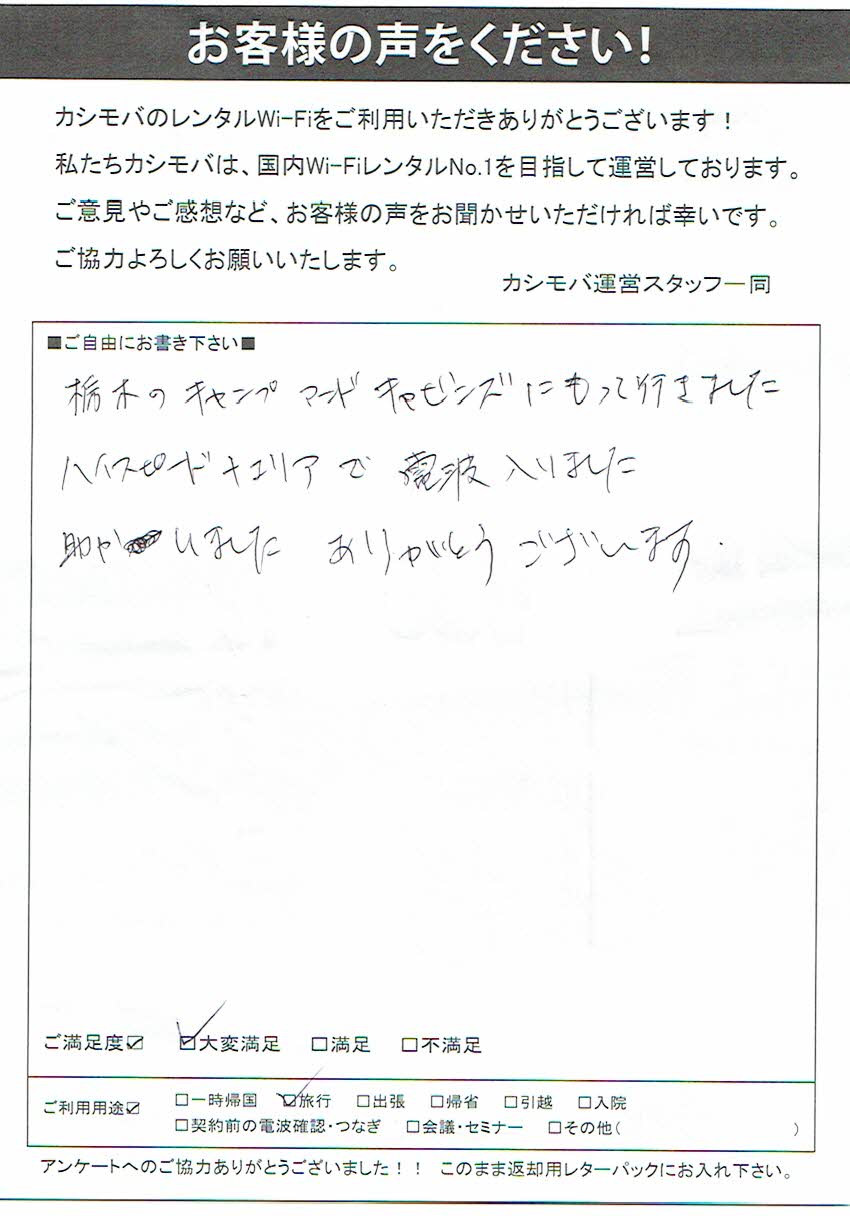 お客様の声をください!
カシモバのレンタルWi-Fiをご利用いただきありがとうございます！
私たちカシモバは、国内Wi-FiレンタルNo.1を目指して運営しております。
ご意見やご感想など、お客様の声をお聞かせいただければ幸いです。
ご協力よろしくお願いいたします。
カシモバ運営スタッフ一同
■ご自由にお書き下さい■
栃木のキャンプ アンド キャビンズにもって行きました
ハイスピードナエリアで 電波入りました
助かりました ありがとうございます.
ご満足度☑ ☑大変満足 □満足 □不満足
ご利用用途☑ □一時帰国 ☑旅行 □出張 □帰省 □引越 □入院
□契約前の電波確認・つなぎ □会議・セミナー □その他( )
アンケートへのご協力ありがとうございました！！ このまま返却用レターパックにお入れ下さい。